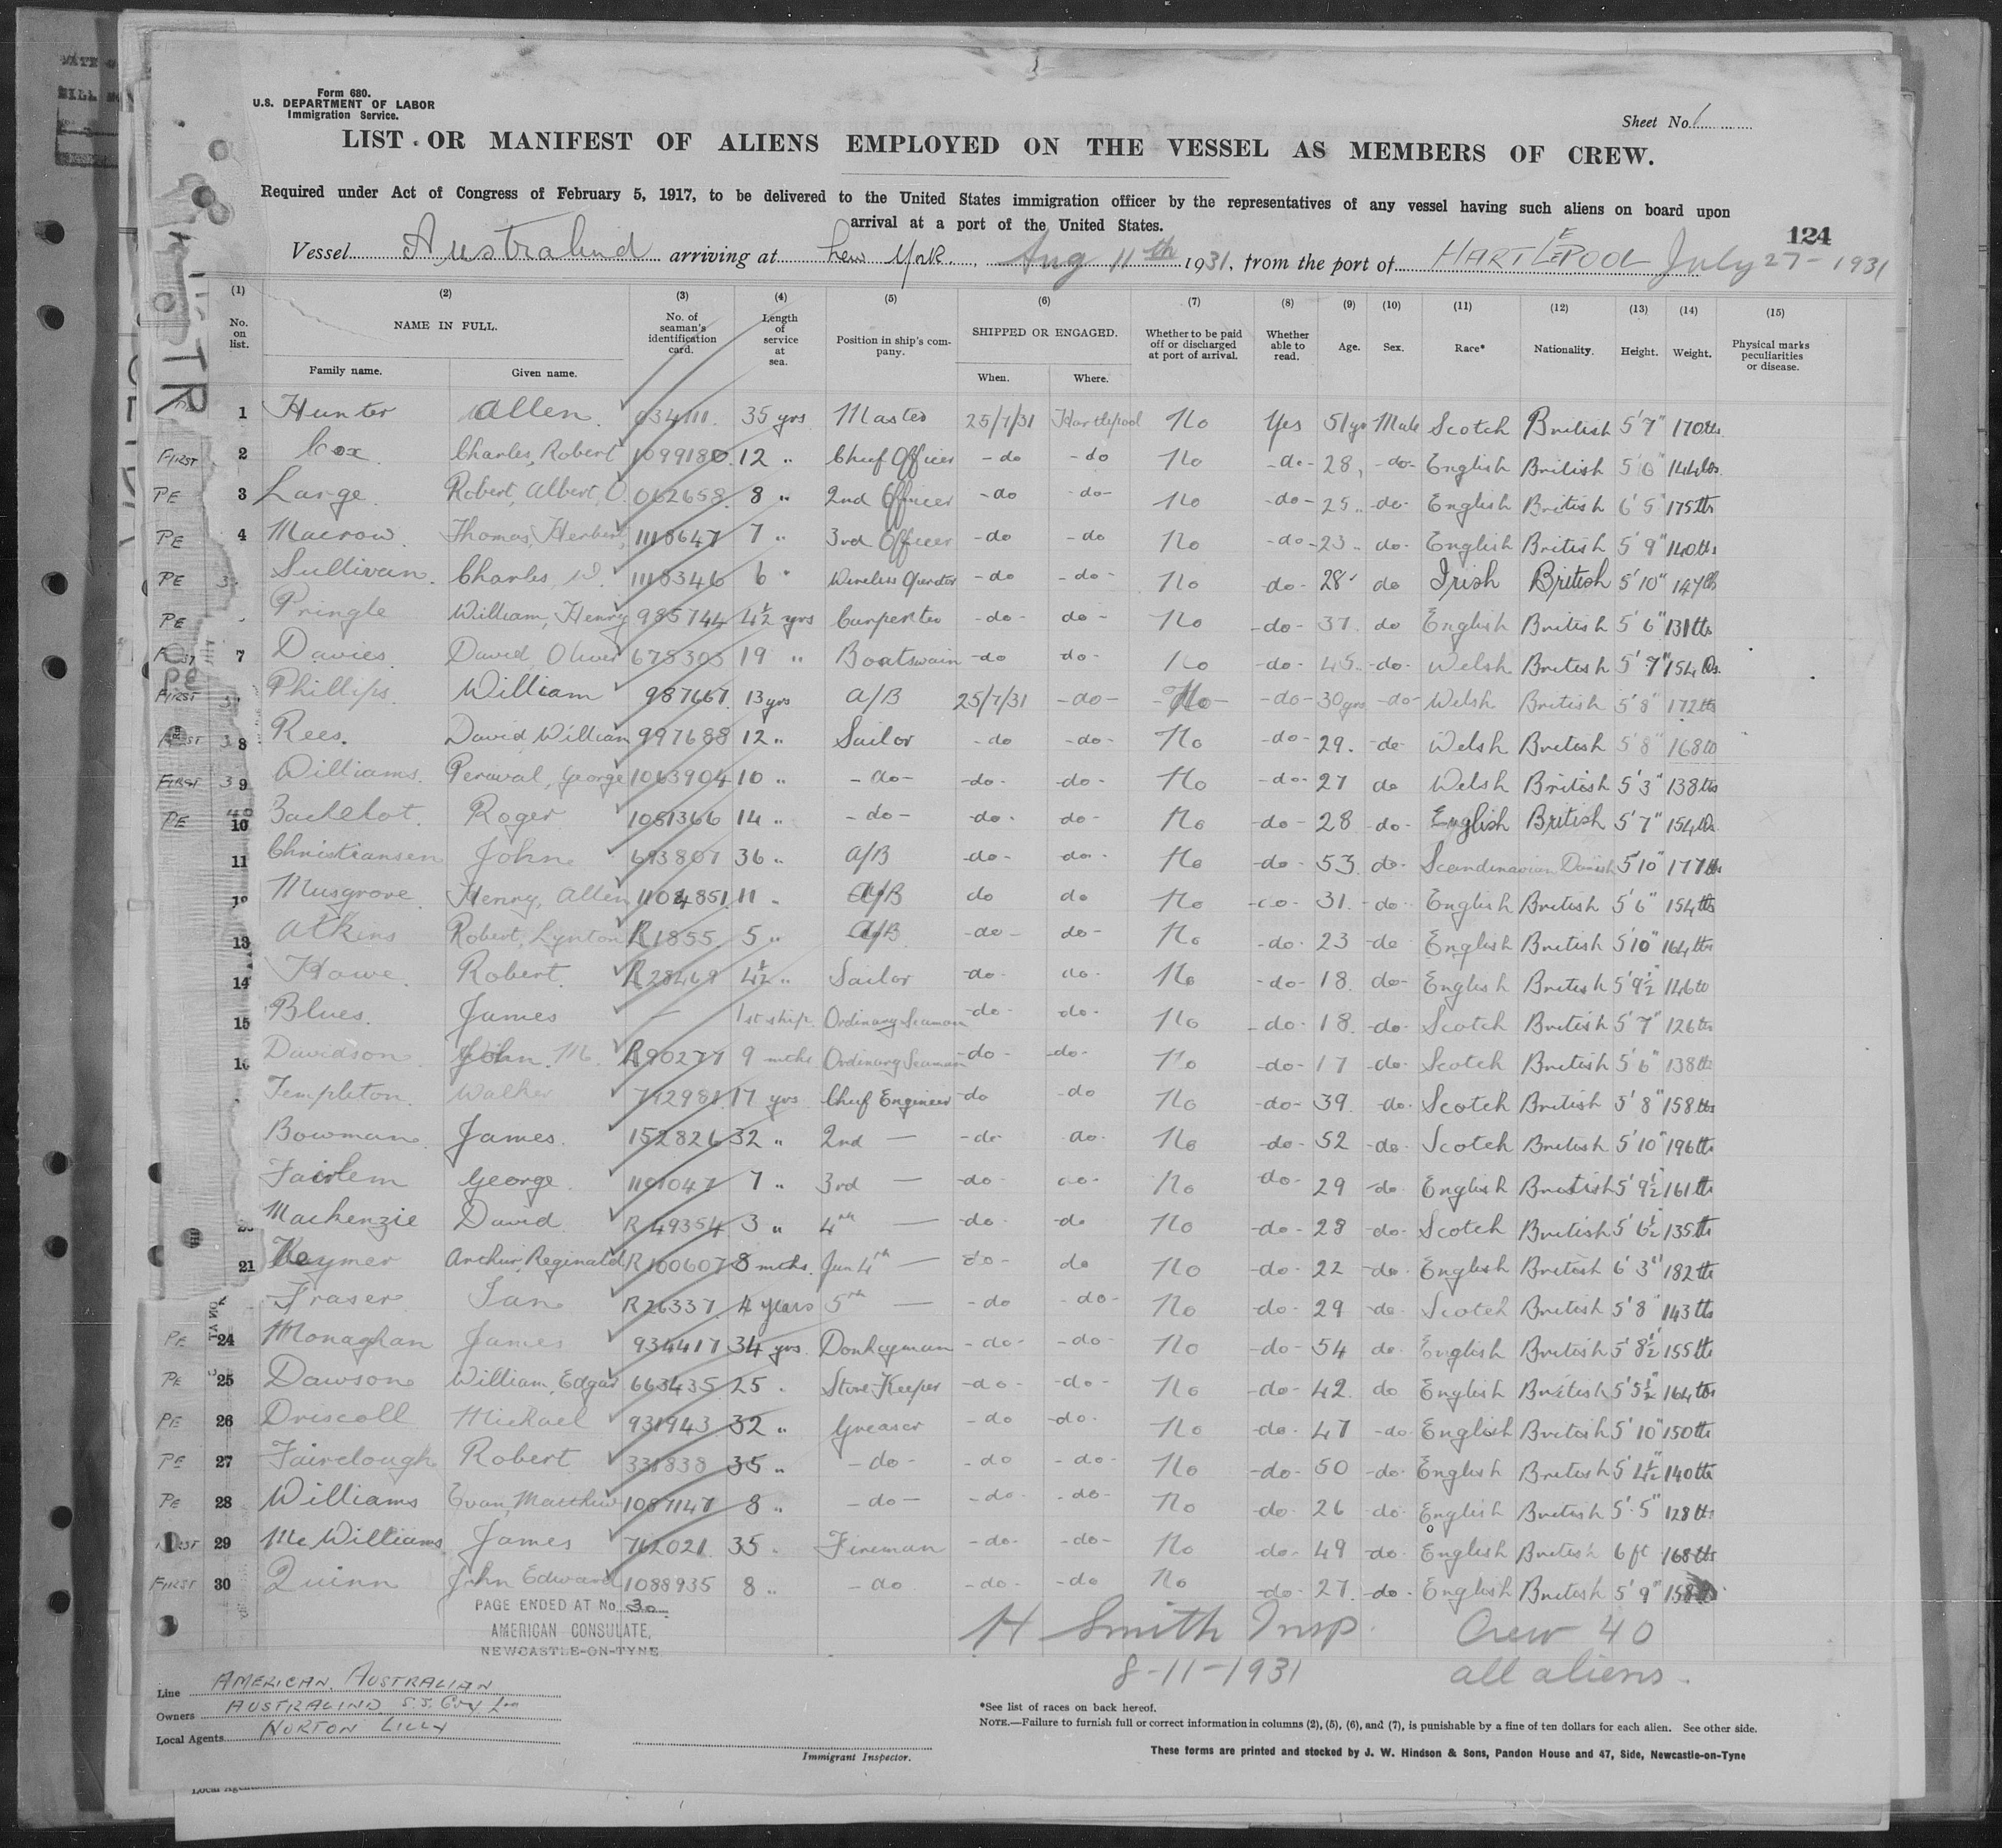 Form 680.
U.S. DEPARTMENT OF LABOR
Immigration Service.
Sheet No. 1
LIST OR MANIFEST OF ALIENS EMPLOYED ON THE VESSEL AS MEMBERS OF CREW.
Required under Act of Congress of February 5, 1917, to be delivered to the United States immigration officer by the representatives of any vessel having such aliens on board upon
arrival at a port of the United States.
124
Vessel Australind arriving at New York Aug 11th 1931, from the port of HARTLEPOOL July 27-1931
(1) (2) (3) (4) (5) (6) (7) (8) (9) (10) (11) (12) (13) (14) (15)
No. on list. NAME IN FULL. Family name. Given name. No. of seaman's identification card. Length of service at sea. Position in ship's company. SHIPPED OR ENGAGED. When. Where. Whether to be paid off or discharged at port of arrival. Whether able to read. Age. Sex. Race* Nationality. Height. Weight. Physical marks peculiarities or disease.
1 Hunter Allen 034111 35 yrs Master 25/7/31 Hartlepool No Yes 51 yrs Male Scotch British 5'7" 170lbs
FIRST 2 Cox Charles, Robert 1099180 12 " Chief Officer -do -do No -do- 28 -do- English British 5'6 144lbs
PE 3 Large Robert, Albert, O. 062658 8 " 2nd Officer -do -do- No -do- 25 -do- English British 6'5" 175lbs
PE 4 Macrow Thomas, Herbert 1118647 7 " 3rd Officer -do -do No -do- 23 do- English British 5'9" 140lbs
PE Sullivan Charles, W. 1118346 6 " Wireless Operator -do -do- No do- 28 do Irish British 5'10" 147lbs
PE Pringle William, Henry 985744 4½ yrs Carpenter -do- do- No -do- 37 do English British 5'6" 131lbs
FIRST 7 Davies David, Oliver 675303 19 " Boatswain -do do- No -do- 45 -do- Welsh British 5'7" 154lbs
FIRST Phillips William 987667 13 yrs A/B 25/7/31 -do- No -do- 30 yrs -do- Welsh British 5'8" 172lbs
FIRST 8 Rees David, William 997688 12 " Sailor -do -do- No -do- 29 -do- Welsh British 5'8" 168lbs
FIRST 9 Williams Percival, George 1063904 10 " -do- -do- -do- No -do- 27 do Welsh British 5'3" 138lbs
PE 10 Bachelot Roger 1081366 14 " -do- -do- do- No -do- 28 -do- English British 5'7" 154lbs
11 Christiansen John 693807 36 " A/B -do- do- No -do- 53 do- Scandinavian Danish 5'10" 177lbs
Musgrove Henry, Allen 1104851 11 " A/B do do No -do- 31 -do- English British 5'6" 154lbs
13 Atkins Robert, Lynton R1855 5 " A/B -do- do- No -do- 23 -do English British 5'10" 164lbs
14 Howe Robert R28469 4½ " Sailor -do- do- No -do- 18 do- English British 5'9½" 146lbs
15 Blues James — 1st ship Ordinary Seaman -do- -do- No -do- 18 -do- Scotch British 5'7" 126lbs
Davidson John. M. R90277 9 mths Ordinary Seaman -do- -do- No -do- 17 -do- Scotch British 5'6" 138lbs
Templeton Walker 742981 17 yrs Chief Engineer -do -do No -do- 39 -do- Scotch British 5'8" 158lbs
Bowman James 152826 32 " 2nd — -do- do- No -do- 52 -do- Scotch British 5'10" 196lbs
Fairlem George 1101047 7 " 3rd — -do- do- No do- 29 -do English British 5'9½ 161lbs
Mackenzie David R49354 3 " 4th — -do- -do No -do- 28 -do- Scotch British 5'6½ 135lbs
21 Keymer Arthur, Reginald R100607 8 mths Jun 4th — do- do No -do- 22 -do- English British 6'3" 182lbs
Fraser Ian R26337 4 years 5th — -do -do- No -do- 29 -do- Scotch British 5'8" 143lbs
PE 24 Monaghan James 934417 34 yrs Donkeyman -do- -do- No -do- 54 do- English British 5'8½ 155lbs
PE 25 Dawson William, Edgar 663435 25 " Store-Keeper -do- -do- No -do- 42 do English British 5'5½ 164lbs
PE 26 Driscoll Michael 931943 32 " Greaser -do -do- No -do- 47 -do- English British 5'10" 150lbs
PE 27 Fairclough Robert 331838 35 " -do- -do -do- No -do- 50 -do- English British 5'4½ 140lbs
PE 28 Williams Evan, Matthew 1087147 8 " -do- -do- -do- No -do- 26 do- English British 5'5" 128lbs
FIRST 29 McWilliams James 762021 35 " Fireman -do- -do- No -do- 49 -do- English British 6 ft 168lbs
FIRST 30 Quinn John Edward 1088935 8 " -do -do- -do No -do- 27 -do- English British 5'9" 158lbs
PAGE ENDED AT No. 30
AMERICAN CONSULATE,
NEWCASTLE-ON-TYNE
H Smith Insp.
8-11-1931
Crew 40
all aliens
Line AMERICAN, AUSTRALIAN
Owners AUSTRALIND S.S. Coy Ltd
Local Agents NORTON LILLY
Immigrant Inspector.
*See list of races on back hereof.
NOTE.—Failure to furnish full or correct information in columns (2), (5), (6), and (7), is punishable by a fine of ten dollars for each alien. See other side.
These forms are printed and stocked by J. W. Hindson & Sons, Pandon House and 47, Side, Newcastle-on-Tyne